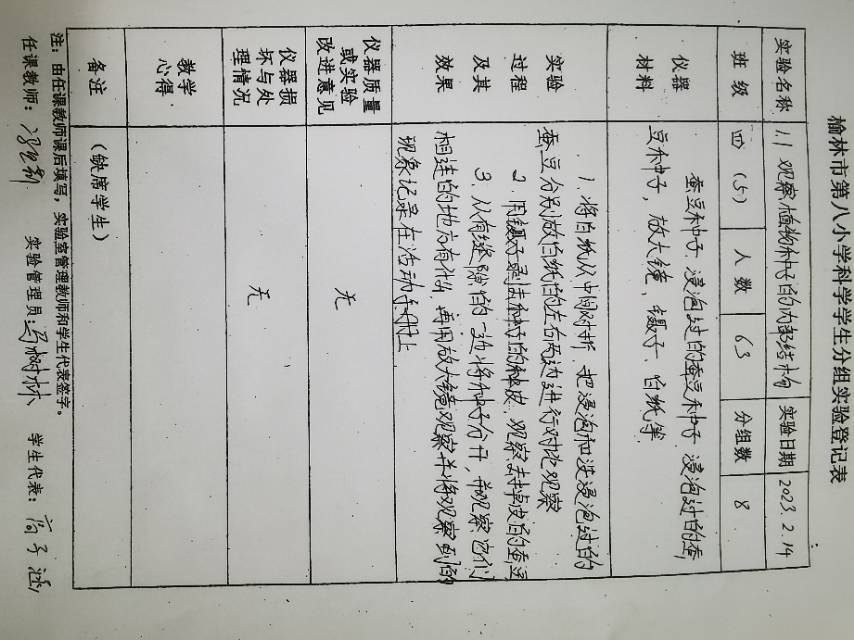 榆林市第八小学科学学生分组实验登记表
实验名称 1.1 观察植物种子的内部结构 实验日期 2023.2.14
班级 四(5) 人数 63 分组数 8
仪器
材料
蚕豆种子、浸泡过的蚕豆种子 浸泡过的蚕
豆种子,放大镜,镊子、白纸等
实验
过程
及其
效果
1、将白纸从中间对折 把浸泡和没浸泡过的
蚕豆分别放白纸的左右两边进行对比观察
2、用镊子剥去种子的种皮,观察去掉皮的蚕豆
3、从有缝隙的一边将种子分开,并观察它们
相连的地方有什么,再用放大镜观察并将观察到的
现象记录在活动手册上
仪器质量
或实验
改进意见
无
仪器损
坏与处
理情况
无
教学
心得
备注
(缺席学生)
注:由任课教师课后填写,实验室管理教师和学生代表签字。
任课教师: 实验管理员:马树林 学生代表:高子涵